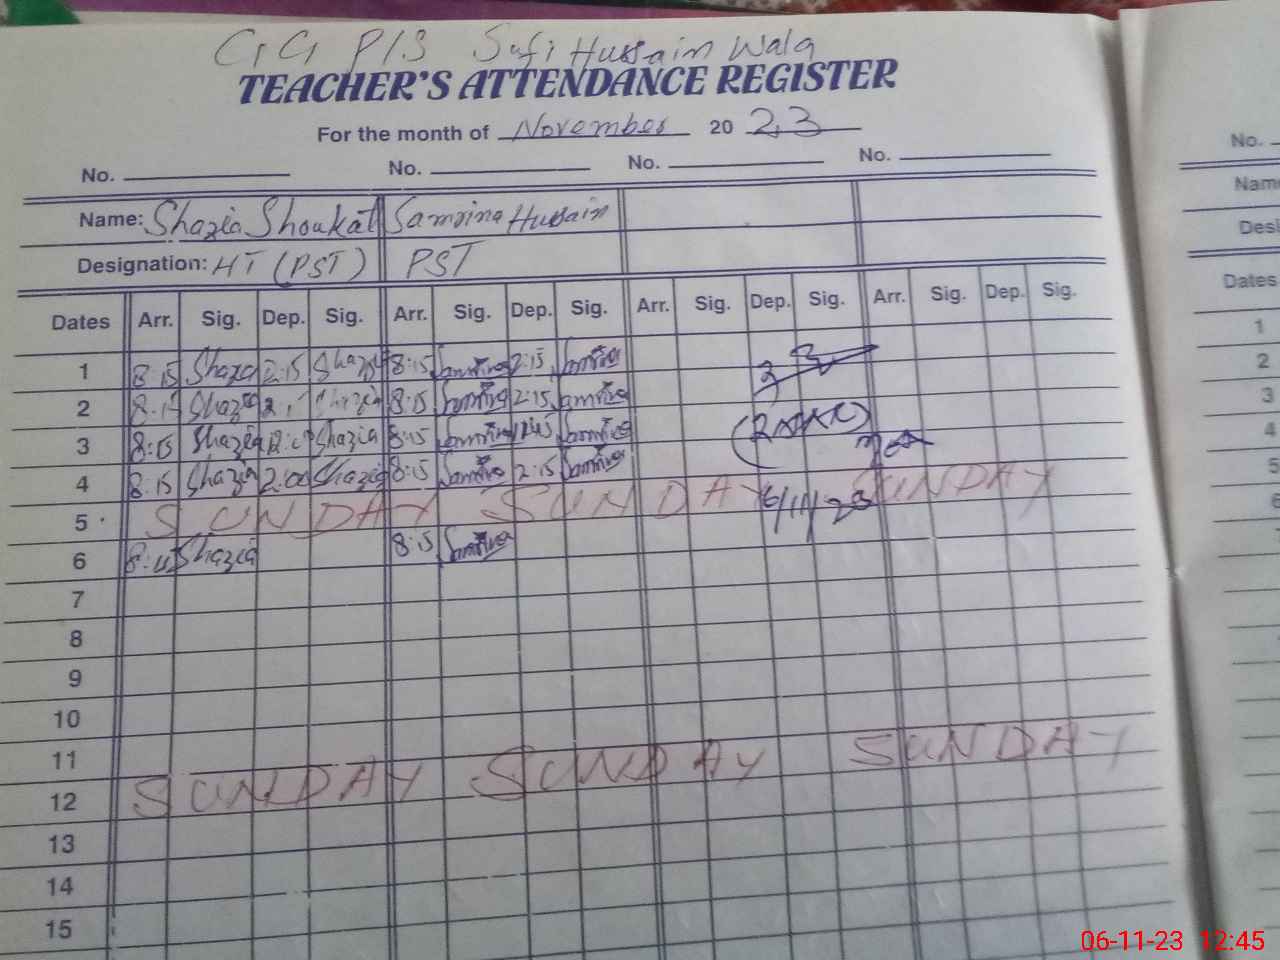 GG P/S Sufi Hussain Wala
TEACHER'S ATTENDANCE REGISTER
For the month of November 20 23
No. No. No. No.
Name: Shazia Shoukat Samrina Hussain
Designation: HT (PST) PST
Dates Arr. Sig. Dep. Sig. Arr. Sig. Dep. Sig. Arr. Sig. Dep. Sig. Arr. Sig. Dep. Sig.
1 8:15 Shazia 2:15 Shazia 8:15 Samrina 2:15 Samrina
2 8:15 Shazia Shazia 8:15 Samrina 2:15 Samrina
3 8:15 Shazia Shazia 8:15 Samrina Samrina
4 8:15 Shazia 2:00 Shazia 8:15 Samrina 2:15 Samrina
5 SUNDAY SUNDAY SUNDAY
6/11/23
6 Shazia 8:15 Samrina
7
8
9
10
11
12 SUNDAY SUNDAY SUNDAY
13
14
15
No.
Name
Desi
Dates
1
2
3
4
5
6
06-11-23 12:45